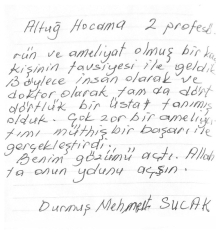 Altuğ Hocama 2 profesö
rün ve ameliyat olmuş bir
kişinin tavsiyesi ile geldik
Böylece insan olarak ve
doktor olarak tam da dört
dörtlük bir üstat tanımış
olduk. Çok zor bir ameliya
tımı müthiş bir başarı ile
gerçekleştirdi.
Benim gözümü açtı. Allah
ta onun yolunu açsın.
Durmuş Mehmet SUCAK